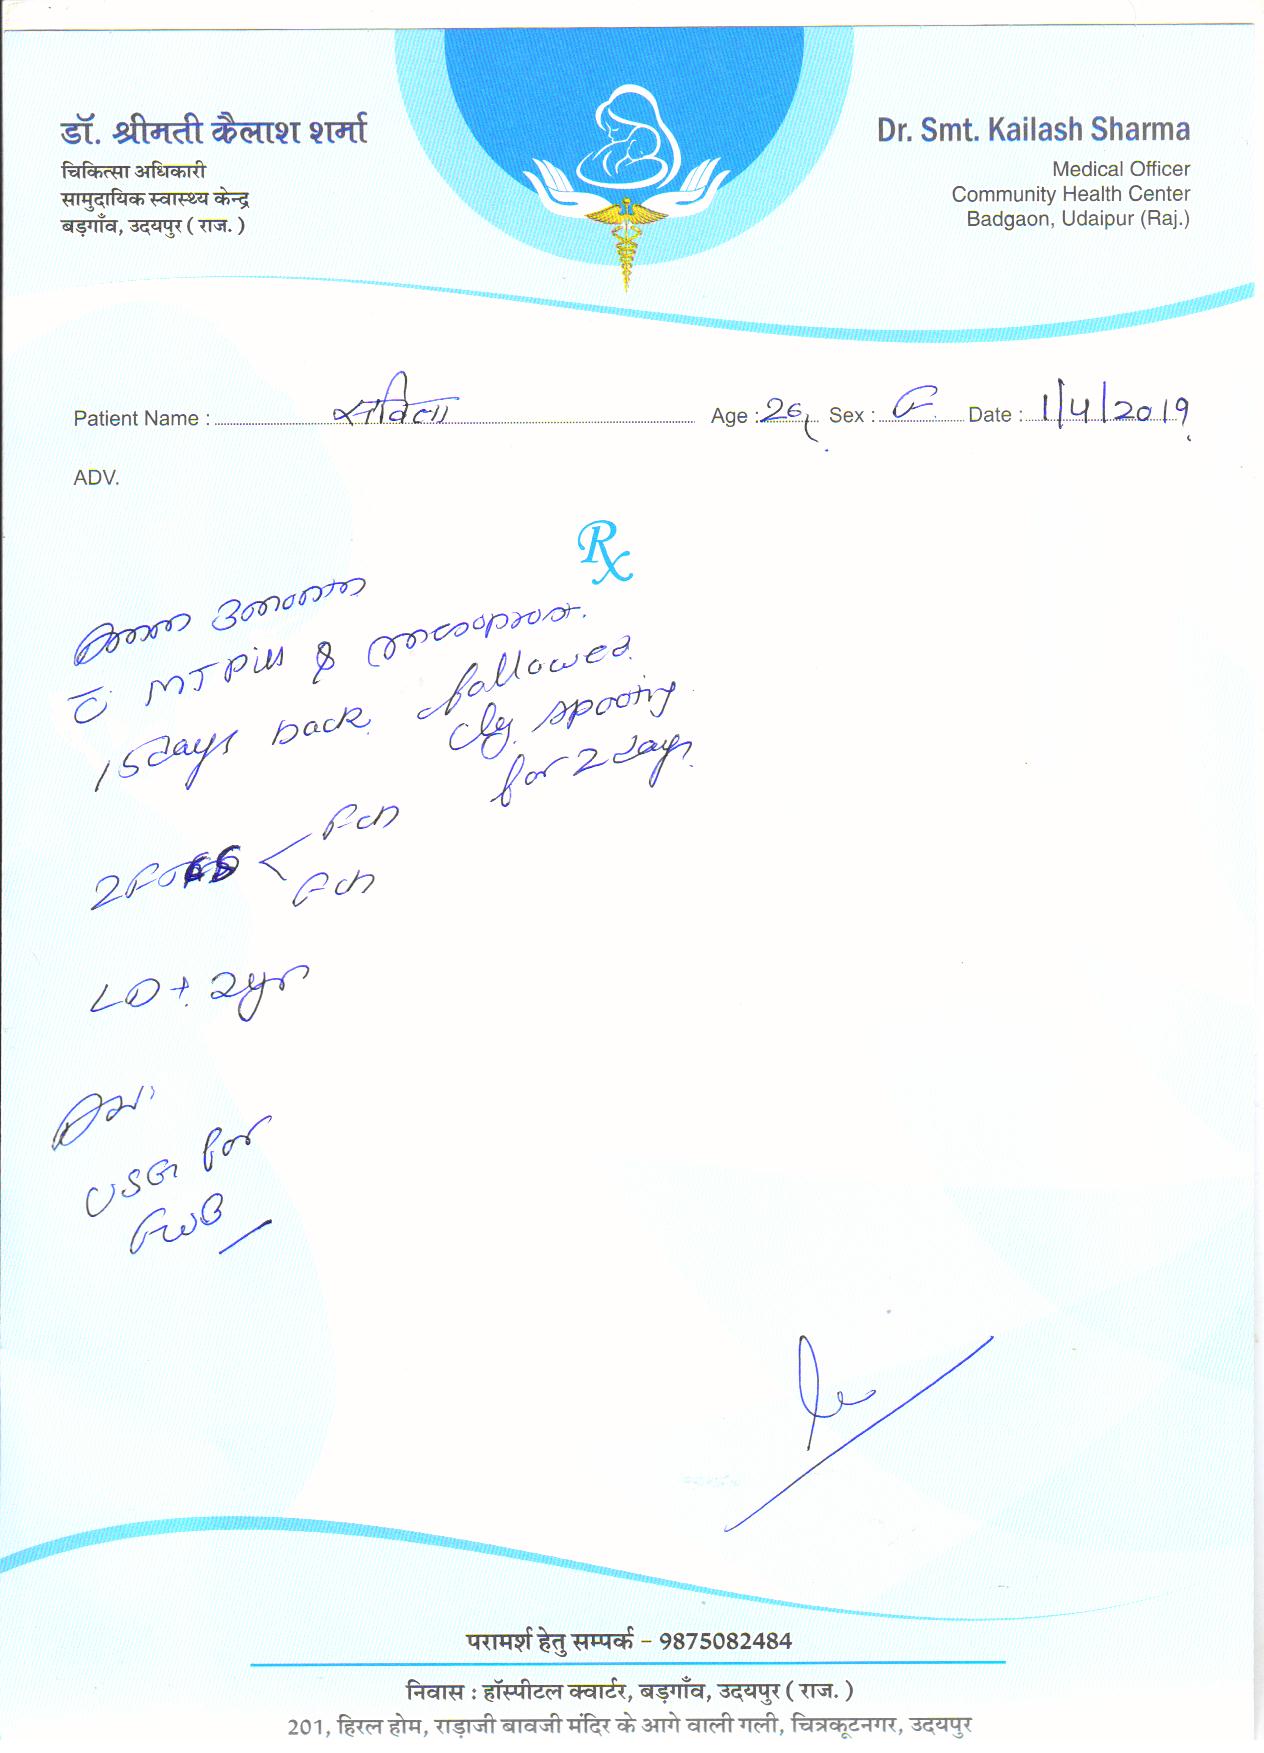 डॉ. श्रीमती कैलाश शर्मा
चिकित्सा अधिकारी
सामुदायिक स्वास्थ्य केन्द्र
बड़गाँव, उदयपुर ( राज. )
Dr. Smt. Kailash Sharma
Medical Officer
Community Health Center
Badgaon, Udaipur (Raj.)
Patient Name : सविता Age : 26 Sex : F Date : 1/4/2019
ADV.
Rx
c̄ MTPills &
15 days back followed
by spotting
for 2 days
2 F
Fch
Fch
LD + 2yr
USG for
FWB
परामर्श हेतु सम्पर्क – 9875082484
निवास : हॉस्पीटल क्वार्टर, बड़गाँव, उदयपुर ( राज. )
201, हिरल होम, राड़ाजी बावजी मंदिर के आगे वाली गली, चित्रकूटनगर, उदयपुर